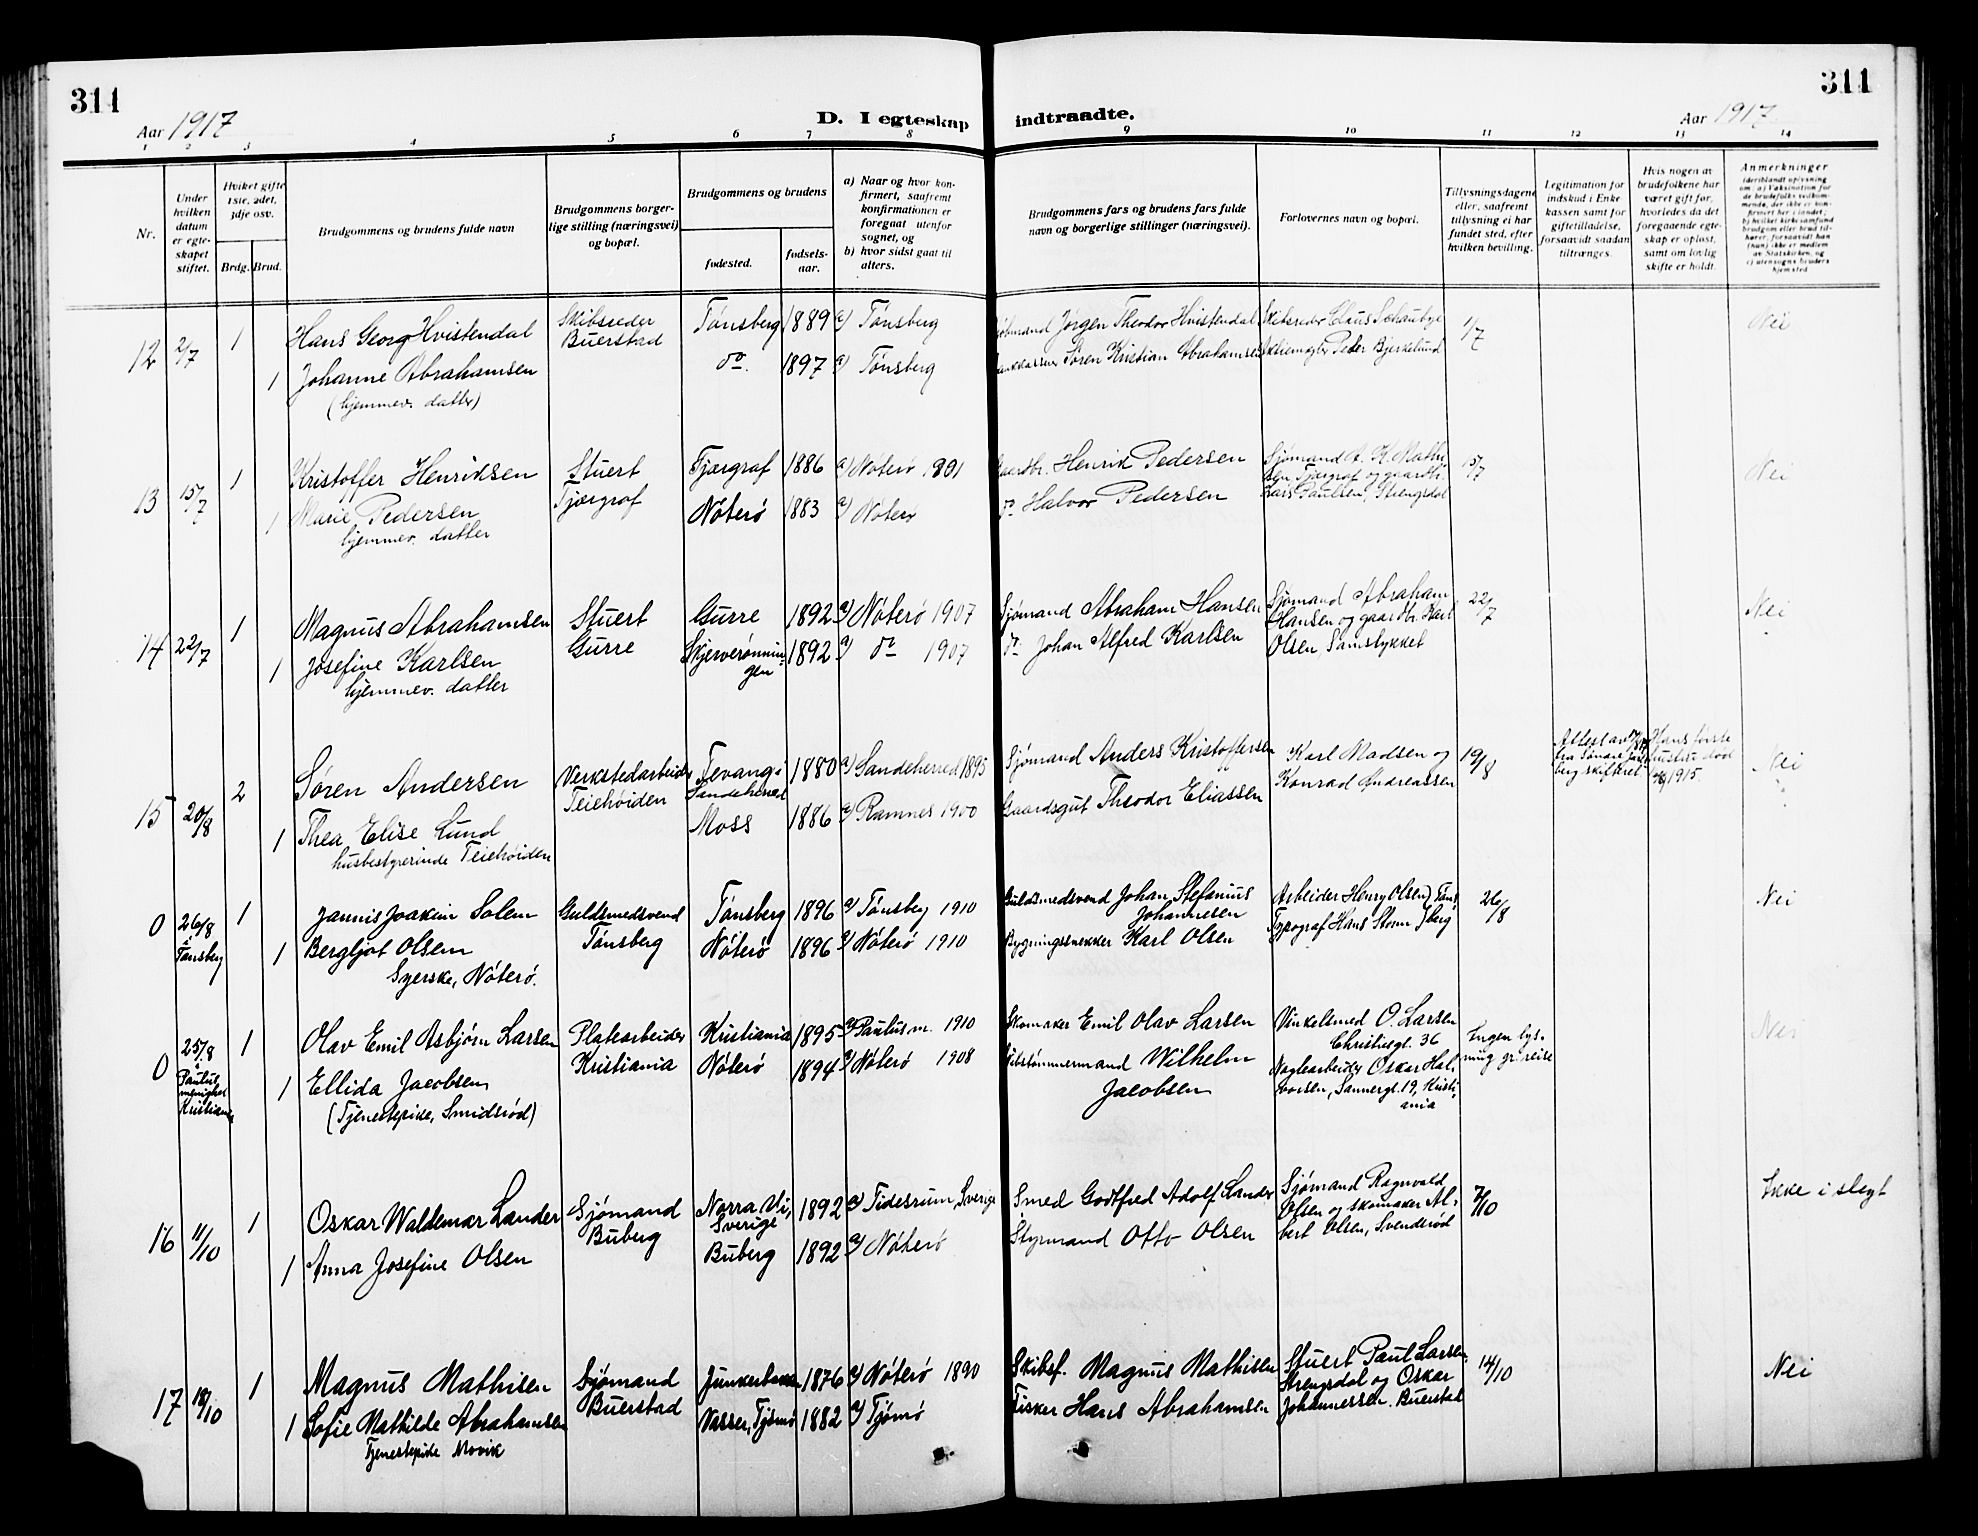 311
311
Aar 1917
D. I egteskap indtraadte.
Aar 1917
1 2 3 4 5 6 7 8 9 10 11 12 13 14
Nr.
Under hvilken datum er egteskapet stiftet.
Hviket gifte 1ste, 2det, 3dje osv.
Brdg. Brud.
Brudgommens og brudens fulde navn
Brudgommens borgerlige stilling (næringsvei) og bopæl.
Brudgommens og brudens
fødested.
fødselsaar.
a) Naar og hvor konfirmert, saafremt konfirmationen er foregaat utenfor sognet, og
b) hvor sidst gaat til alters.
Brudgommens fars og brudens fars fulde navn og borgerlige stillinger (næringsvei).
Forlovernes navn og bopæl.
Tillysningsdagene eller, saafremt tillysning ei har fundet sted, efter hvilken bevilling.
Legitimation for indskud i Enkekassen samt for giftetilladelse, forsaavidt saadan tiltrænges.
Hvis nogen av brudefolkene har været gift før, hvorledes da det foregaaende egteskap er opløst, samt om lovlig skifte er holdt.
Anmerkninger
12 2/7 1 Hans Georg Hvistendal Skibsreder Buerstad Tønsberg 1889 a) Tønsberg Jørgen Theodor Hvistendal Skibsreder Claus Schaubye 1/7 Nei
1 Johanne Abrahamsen do. 1897 a) Tønsberg Søren Kristian Abrahamsen Aktiemægler Peder Bjerkelund
(hjemmev. datter)
13 15/7 1 Kristoffer Henriksen Stuert Tjørgraf 1886 a) Nøterø 1901 Gaardbr. Henrik Pedersen Sjømand A. K. Mathisen Tjærgraf og gaardbr. 15/7 Nei
1 Marie Pedersen Tjærgraf Nøterø 1883 a) Nøterø do Halvor Pedersen Lars Paulsen, Strengsdal
hjemmev. datter
14 22/7 1 Magnus Abrahamsen Stuert Gurre 1892 a) Nøterø 1907 Sjømand Abraham Hansen Sjømand Abraham Hansen og gaardbr. Karl 22/7 Nei
1 Josefine Karlsen Gurre Skjerverønningen 1892 a) do 1907 do Johan Alfred Karlsen Olsen, Samstykket
hjemmev. datter
15 20/8 2 Søren Andersen Verkstedarbeider Tevang i Sandeherred 1880 a) Sandeherred 1895 Sjømand Anders Kristoffersen Karl Madsen og 19/8 Attest av fra Søndre Jarlsberg skifteret Hans første hustru død 1915. Nei
1 Thea Elise Lund Teiehøiden Moss 1886 a) Ramnes 1900 Gaardsgut Theodor Eliassen Konrad Andreassen
husbestyrerinde Teiehøiden
0 26/8 Tønsberg 1 Jannis Joakim Solem Guldsmedsvend Tønsberg 1896 a) Tønsberg 1910 Guldsmedsvend Johan Stefanius Johannesen Arbeider Henry Olsen Tønsberg 26/8 Nei
1 Bergljot Olsen Tønsberg Nøterø 1896 a) Nøterø 1910 Bygningssnekker Karl Olsen Typograf Hans Storm
Syerske, Nøterø.
0 25/8 i Paulus menighet Kristiania 1 Olav Emil Asbjørn Larsen Platearbeider Kristiania 1895 a) Paulus m. 1910 Skomaker Emil Olav Larsen Vinkelsmed O. Larsen Christiesgt. 36 Ingen lysning gr. reise Nei
1 Ellida Jacobsen Kristiania Nøterø 1894 a) Nøterø 1908 Skibstømmermand Wilhelm Jacobsen Naglearbeider Oskar Halvorsen, Sannergt. 19, Kristiania
(Tjenestepike, Smidsrød)
16 11/10 1 Oskar Waldemar Lander Sjømand Norra Vi, Sverige 1892 a) Tidesrum, Sverige Smed Godtfred Adolf Lander Sjømand Ragnvald Olsen og skomaker Al- 7/10 Ikke i slegt
1 Anna Josefine Olsen Buberg Buberg 1892 a) Nøterø Styrmand Otto Olsen bert Olsen, Svendsrød
17 18/10 1 Magnus Mathisen Sjømand 1876 a) Nøterø 1890 Skibsf. Magnus Mathisen Stuert Paul Larsen, Strengsdal og Oskar 14/10 Nei
1 Sofie Mathilde Abrahamsen Buerstad Vasser, Tjømø 1882 a) Tjømø Fisker Hans Abrahamsen Johannessen. Buerstad
Tjenestepike Movik